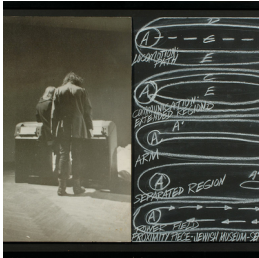 A
E
LOCOMOTION:
PATH
E
A
E
COMMUNICATION:
EXTENDED REGIONS
A'
A
ARM
A
A'
SEPARATED REGION
A
POWER FIELD
PROXIMITY PIECE-JEWISH MUSEUM-SE